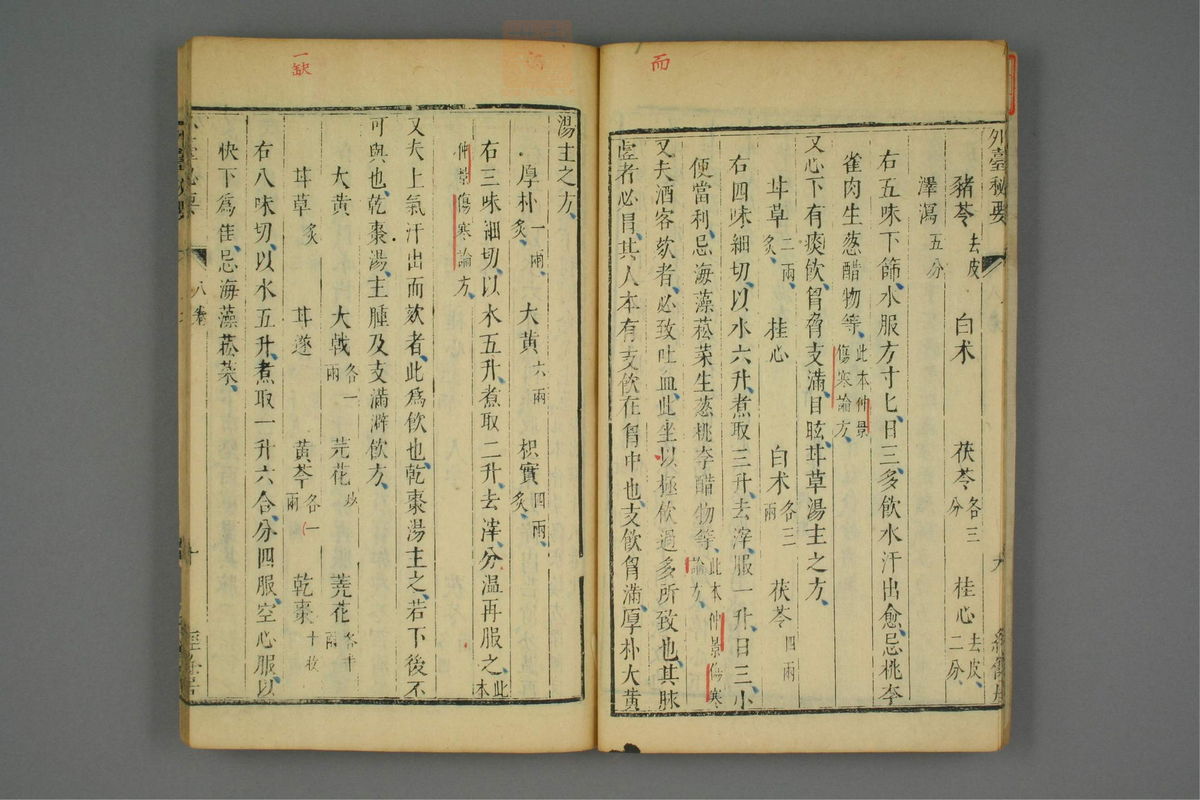 而
外臺秘要
豬苓去皮 白朮 茯苓各三分 桂心去皮二分
澤瀉五分
右五味下篩、水服方寸匕、日三、多飲水汗出愈、忌桃李
雀肉生葱醋物等、此本仲景傷寒論方、
又心下有痰飲、胷脅支滿、目眩、甘草湯主之方、
甘草二兩炙、 桂心 白朮各三兩 茯苓四兩
右四味細切、以水六升、煮取三升、去滓、服一升、日三、小
便當利、忌海藻菘菜生葱桃李醋物等、此本仲景傷寒論方、
又夫酒客欬者、必致吐血、此坐以極飲過多所致也、其脉
虛者必冒、其人本有支飲在胷中也、支飲胷滿、厚朴大黃
一缺
湯主之方、
厚朴一兩炙、 大黃六兩 枳實四兩炙、
右三味細切、以水五升、煮取二升、去滓、分溫再服之、此本
仲景傷寒論方、
又夫上氣汗出而欬者、此爲飲也、乾棗湯主之、若下後不
可與也、乾棗湯、主腫及支滿澼飲方、
大黃 大戟各一兩 芫花炒 蕘花各半兩
甘草炙 甘遂 黃芩各一兩 乾棗十枚
右八味切、以水五升、煮取一升六合、分四服、空心服、以
快下爲佳、忌海藻菘菜、
八卷